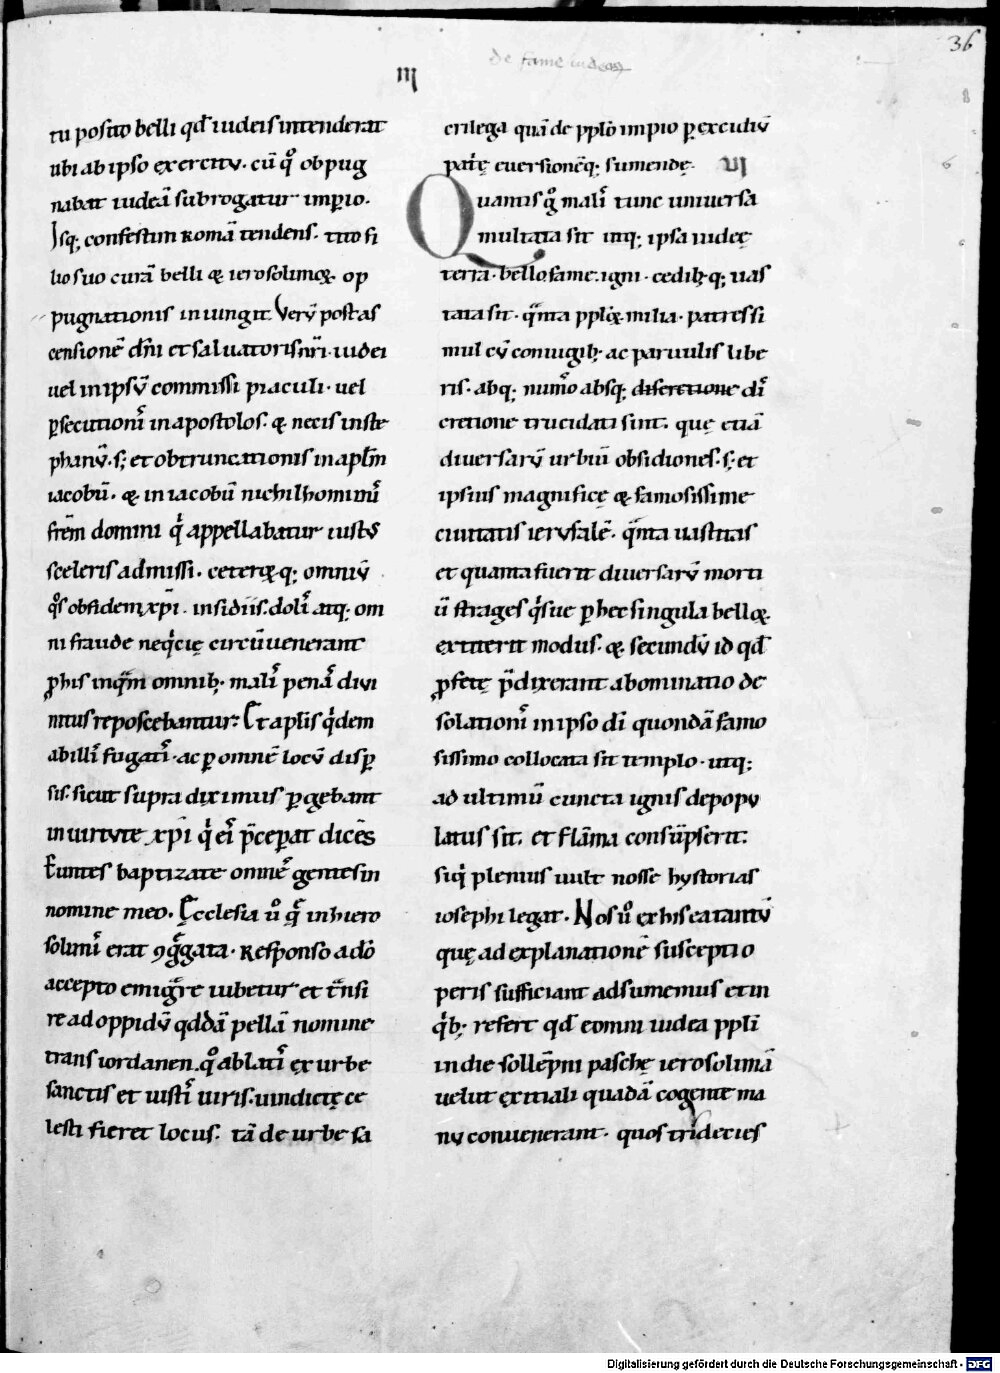 36
de fame iudeoꝝ
III
tu posito belli qđ iudeis intenderat
ubi ab ipso exercitu. cū qͦ obpug
nabat iudeā subrogatur impio.
Isq; confestim Romā tendens. tito fi
lio suo curā belli & ierosolimoꝝ. op
pugnationis iniungit. Verū post as
censionē dn̄i et saluatoris nr̄i. iudei
uel in ipsū commissi piaculi. uel
ꝑsecutionū in apostolos. & necis in ste
phanū. s; et obtruncationis in apl̄m
iacobū. & in iacobū nichilhominꝰ
frēm domini qͥ appellabatur iustus
sceleris admissi. ceteroꝝq; omniū
qͦs obsidem xp̄i. insidiis. doli atq; om
ni fraude neqͥcię circūuenerant
ꝓphis inqͣm omnib; mali penā diui
nitus reposcebantur: Et aplis qͥdem
ab illis fugatis. ac ꝑ omnē locū disꝑ
sis. sicut supra diximus ꝑgebant
in uirtute xp̄i qͥ eis p̄ceꝑat dicēs
Euntes baptizate omnes gentes in
nomine meo. Ecclesia uͦ quę in hiero
solimis erat ꝯgͣgata. Responso a dō
accepto emigͣre iubetur et tͣnsi
re ad oppidū qddā pellā nomine
trans iordanen. qͦ ablatis ex urbe
sanctis et iustis uiris. uindictę ce
lesti fieret locus. tā de urbe sa
crilega quā de ppłō impio ꝑ excidiū
patͥę euersionēq; sumendę. VI
Quantis gͦ malis tunc uniuersa
multata sit inq; ipsa iudeę
terra. bello. fame. igni. cedib;q; uas
tata sit. qͣnta ppłoꝝ. milia. patres si
mul cū coniugib; ac paruulis libe
ris. absq; numͦo absq; discretione dis
cretione trucidati sint. quę etiā
diuersarū urbiū obsidiones. s; et
ipsius magnificę & famosissime
ciuitatis ierusalē. qͣnta uastitas
et quanta fuerit diuersarū morti
ū strages qͥsue ꝑ hec singula belloꝝ.
extiterit modus. & secundū id qđ
ꝓfetę p̄dixerant abominatio de
solationis in ipso di quondā famo
sissimo collocata sit templo. utq;
ad ultimū cuncta ignis depopu
latus sit. et flāma consūpserit.
siqͥ plenius uult nosse hystorias
iosephi legat. Nos uͦ ex his ea tantū
quę ad explanationē suscepti o
peris sufficiant adsumemus et in
qͥb; refert qđ eomni iudea ppłi
in die sollēpni paschę ierosolimā
uelut exitiali quadā cogente ma
nu conuenerant. quos tridecies
Digitalisierung gefördert durch die Deutsche Forschungsgemeinschaft - DFG